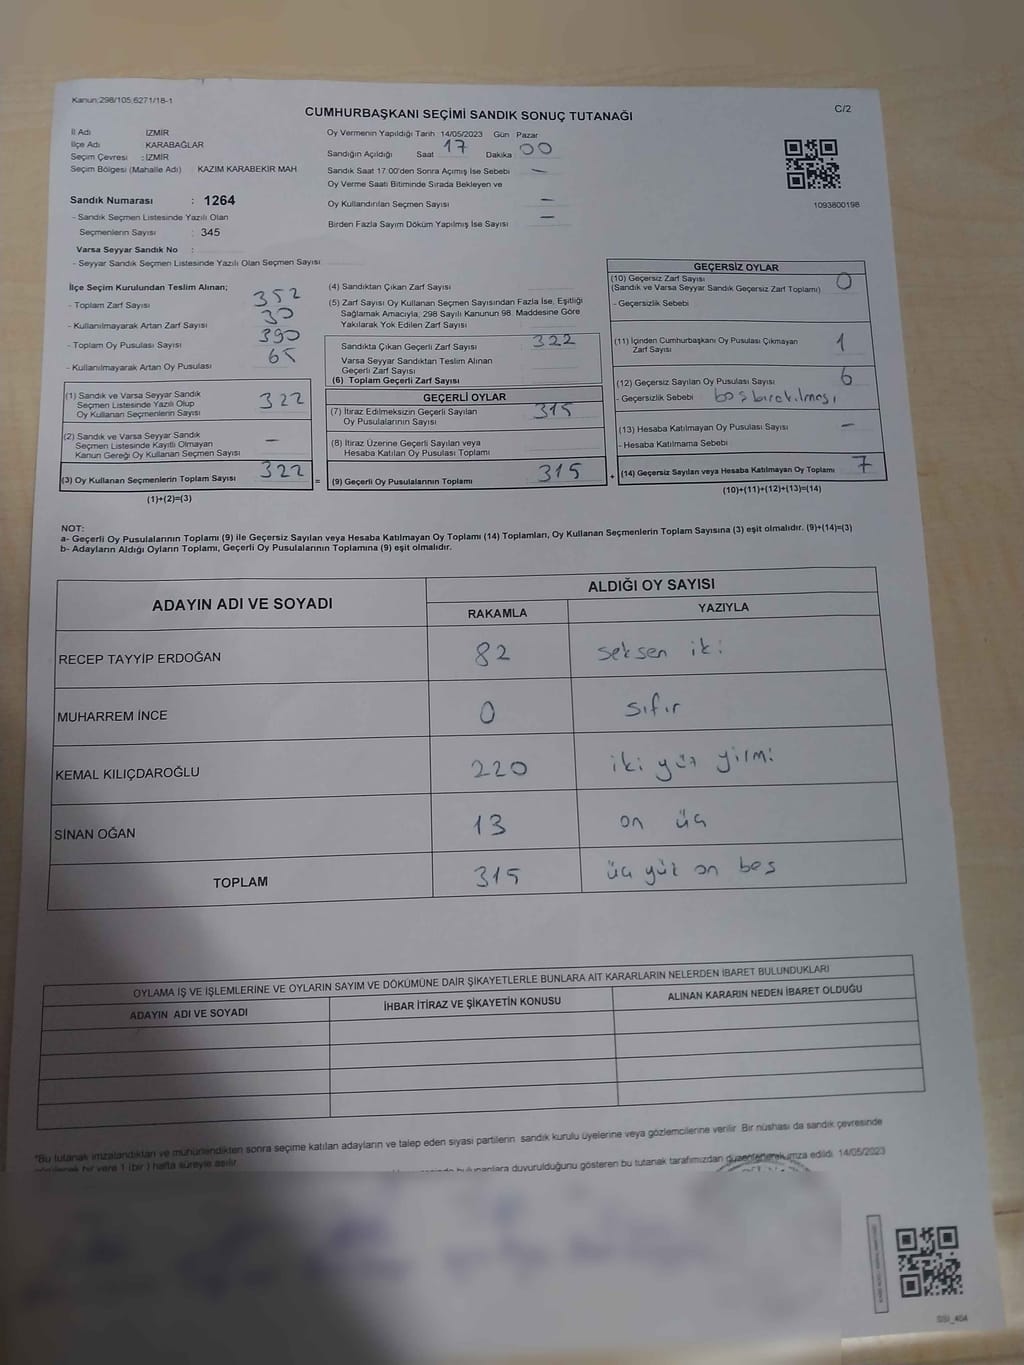 Kanun;298/105;6271/18-1
CUMHURBAŞKANI SEÇİMİ SANDIK SONUÇ TUTANAĞI
C/2
İl Adı İZMİR
İlçe Adı : KARABAĞLAR
Seçim Çevresi : İZMİR
Seçim Bölgesi (Mahalle Adı) KAZIM KARABEKİR MAH
Sandık Numarası : 1264
- Sandık Seçmen Listesinde Yazılı Olan
Seçmenlerin Sayısı : 345
Varsa Seyyar Sandık No :
- Seyyar Sandık Seçmen Listesinde Yazılı Olan Seçmen Sayısı
Oy Vermenin Yapıldığı Tarih 14/05/2023 Gün : Pazar
Sandığın Açıldığı Saat 17 Dakika 00
Sandık Saat 17:00'den Sonra Açımış İse Sebebi —
Oy Verme Saati Bitiminde Sırada Bekleyen ve
Oy Kullandırılan Seçmen Sayısı —
Birden Fazla Sayım Döküm Yapılmış İse Sayısı —
1093800198
İlçe Seçim Kurulundan Teslim Alınan;
- Toplam Zarf Sayısı 352
- Kullanılmayarak Artan Zarf Sayısı 30
- Toplam Oy Pusulası Sayısı 390
- Kullanılmayarak Artan Oy Pusulası 65
(1) Sandık ve Varsa Seyyar Sandık
Seçmen Listesinde Yazılı Olup
Oy Kullanan Seçmenlerin Sayısı 322
(2) Sandık ve Varsa Seyyar Sandık
Seçmen Listesinde Kayıtlı Olmayan
Kanun Gereği Oy Kullanan Seçmen Sayısı —
(3) Oy Kullanan Seçmenlerin Toplam Sayısı 322
(1)+(2)=(3)
(4) Sandıktan Çıkan Zarf Sayısı
(5) Zarf Sayısı Oy Kullanan Seçmen Sayısından Fazla İse, Eşitliği
Sağlamak Amacıyla, 298 Sayılı Kanunun 98. Maddesine Göre
Yakılarak Yok Edilen Zarf Sayısı
Sandıkta Çıkan Geçerli Zarf Sayısı 322
Varsa Seyyar Sandıktan Teslim Alınan
Geçerli Zarf Sayısı
(6) Toplam Geçerli Zarf Sayısı
GEÇERLİ OYLAR
(7) İtiraz Edilmeksizin Geçerli Sayılan
Oy Pusulalarının Sayısı 315
(8) İtiraz Üzerine Geçerli Sayılan veya
Hesaba Katılan Oy Pusulası Toplamı
= (9) Geçerli Oy Pusulalarının Toplamı 315 +
GEÇERSİZ OYLAR
(10) Geçersiz Zarf Sayısı 0
(Sandık ve Varsa Seyyar Sandık Geçersiz Zarf Toplamı)
- Geçersizlik Sebebi
(11) İçinden Cumhurbaşkanı Oy Pusulası Çıkmayan
Zarf Sayısı 1
(12) Geçersiz Sayılan Oy Pusulası Sayısı 6
- Geçersizlik Sebebi boş bırakılması
(13) Hesaba Katılmayan Oy Pusulası Sayısı —
- Hesaba Katılmama Sebebi
(14) Geçersiz Sayılan veya Hesaba Katılmayan Oy Toplamı 7
(10)+(11)+(12)+(13)=(14)
NOT:
a- Geçerli Oy Pusulalarının Toplamı (9) ile Geçersiz Sayılan veya Hesaba Katılmayan Oy Toplamı (14) Toplamları, Oy Kullanan Seçmenlerin Toplam Sayısına (3) eşit olmalıdır. (9)+(14)=(3)
b- Adayların Aldığı Oyların Toplamı, Geçerli Oy Pusulalarının Toplamına (9) eşit olmalıdır.
ADAYIN ADI VE SOYADI ALDIĞI OY SAYISI
RAKAMLA YAZIYLA
RECEP TAYYİP ERDOĞAN 82 seksen iki
MUHARREM İNCE 0 sıfır
KEMAL KILIÇDAROĞLU 220 iki yüz yirmi
SİNAN OĞAN 13 on üç
TOPLAM 315 üç yüz on beş
OYLAMA İŞ VE İŞLEMLERİNE VE OYLARIN SAYIM VE DÖKÜMÜNE DAİR ŞİKAYETLERLE BUNLARA AİT KARARLARIN NELERDEN İBARET BULUNDUKLARI
ADAYIN ADI VE SOYADI İHBAR İTİRAZ VE ŞİKAYETİN KONUSU ALINAN KARARIN NEDEN İBARET OLDUĞU
*Bu tutanak imzalandıktan ve mühürlendikten sonra seçime katılan adayların ve talep eden siyasi partilerin sandık kurulu üyelerine veya gözlemcilerine verilir. Bir nüshası da sandık çevresinde
bir yere 1 (bir) hafta süreyle asılır.
bulunanlara duyurulduğunu gösteren bu tutanak tarafımızdan düzenlenerek imza edildi. 14/05/2023
SSI_404